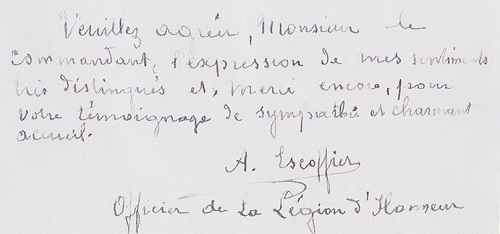 Veuillez agréer, Monsieur le
Commandant, l'expression de mes sentiments
très distingués et, merci encore, pour
votre témoignage de sympathie et charmant
accueil.
A. Escoffier
Officier de La Légion d'Honneur